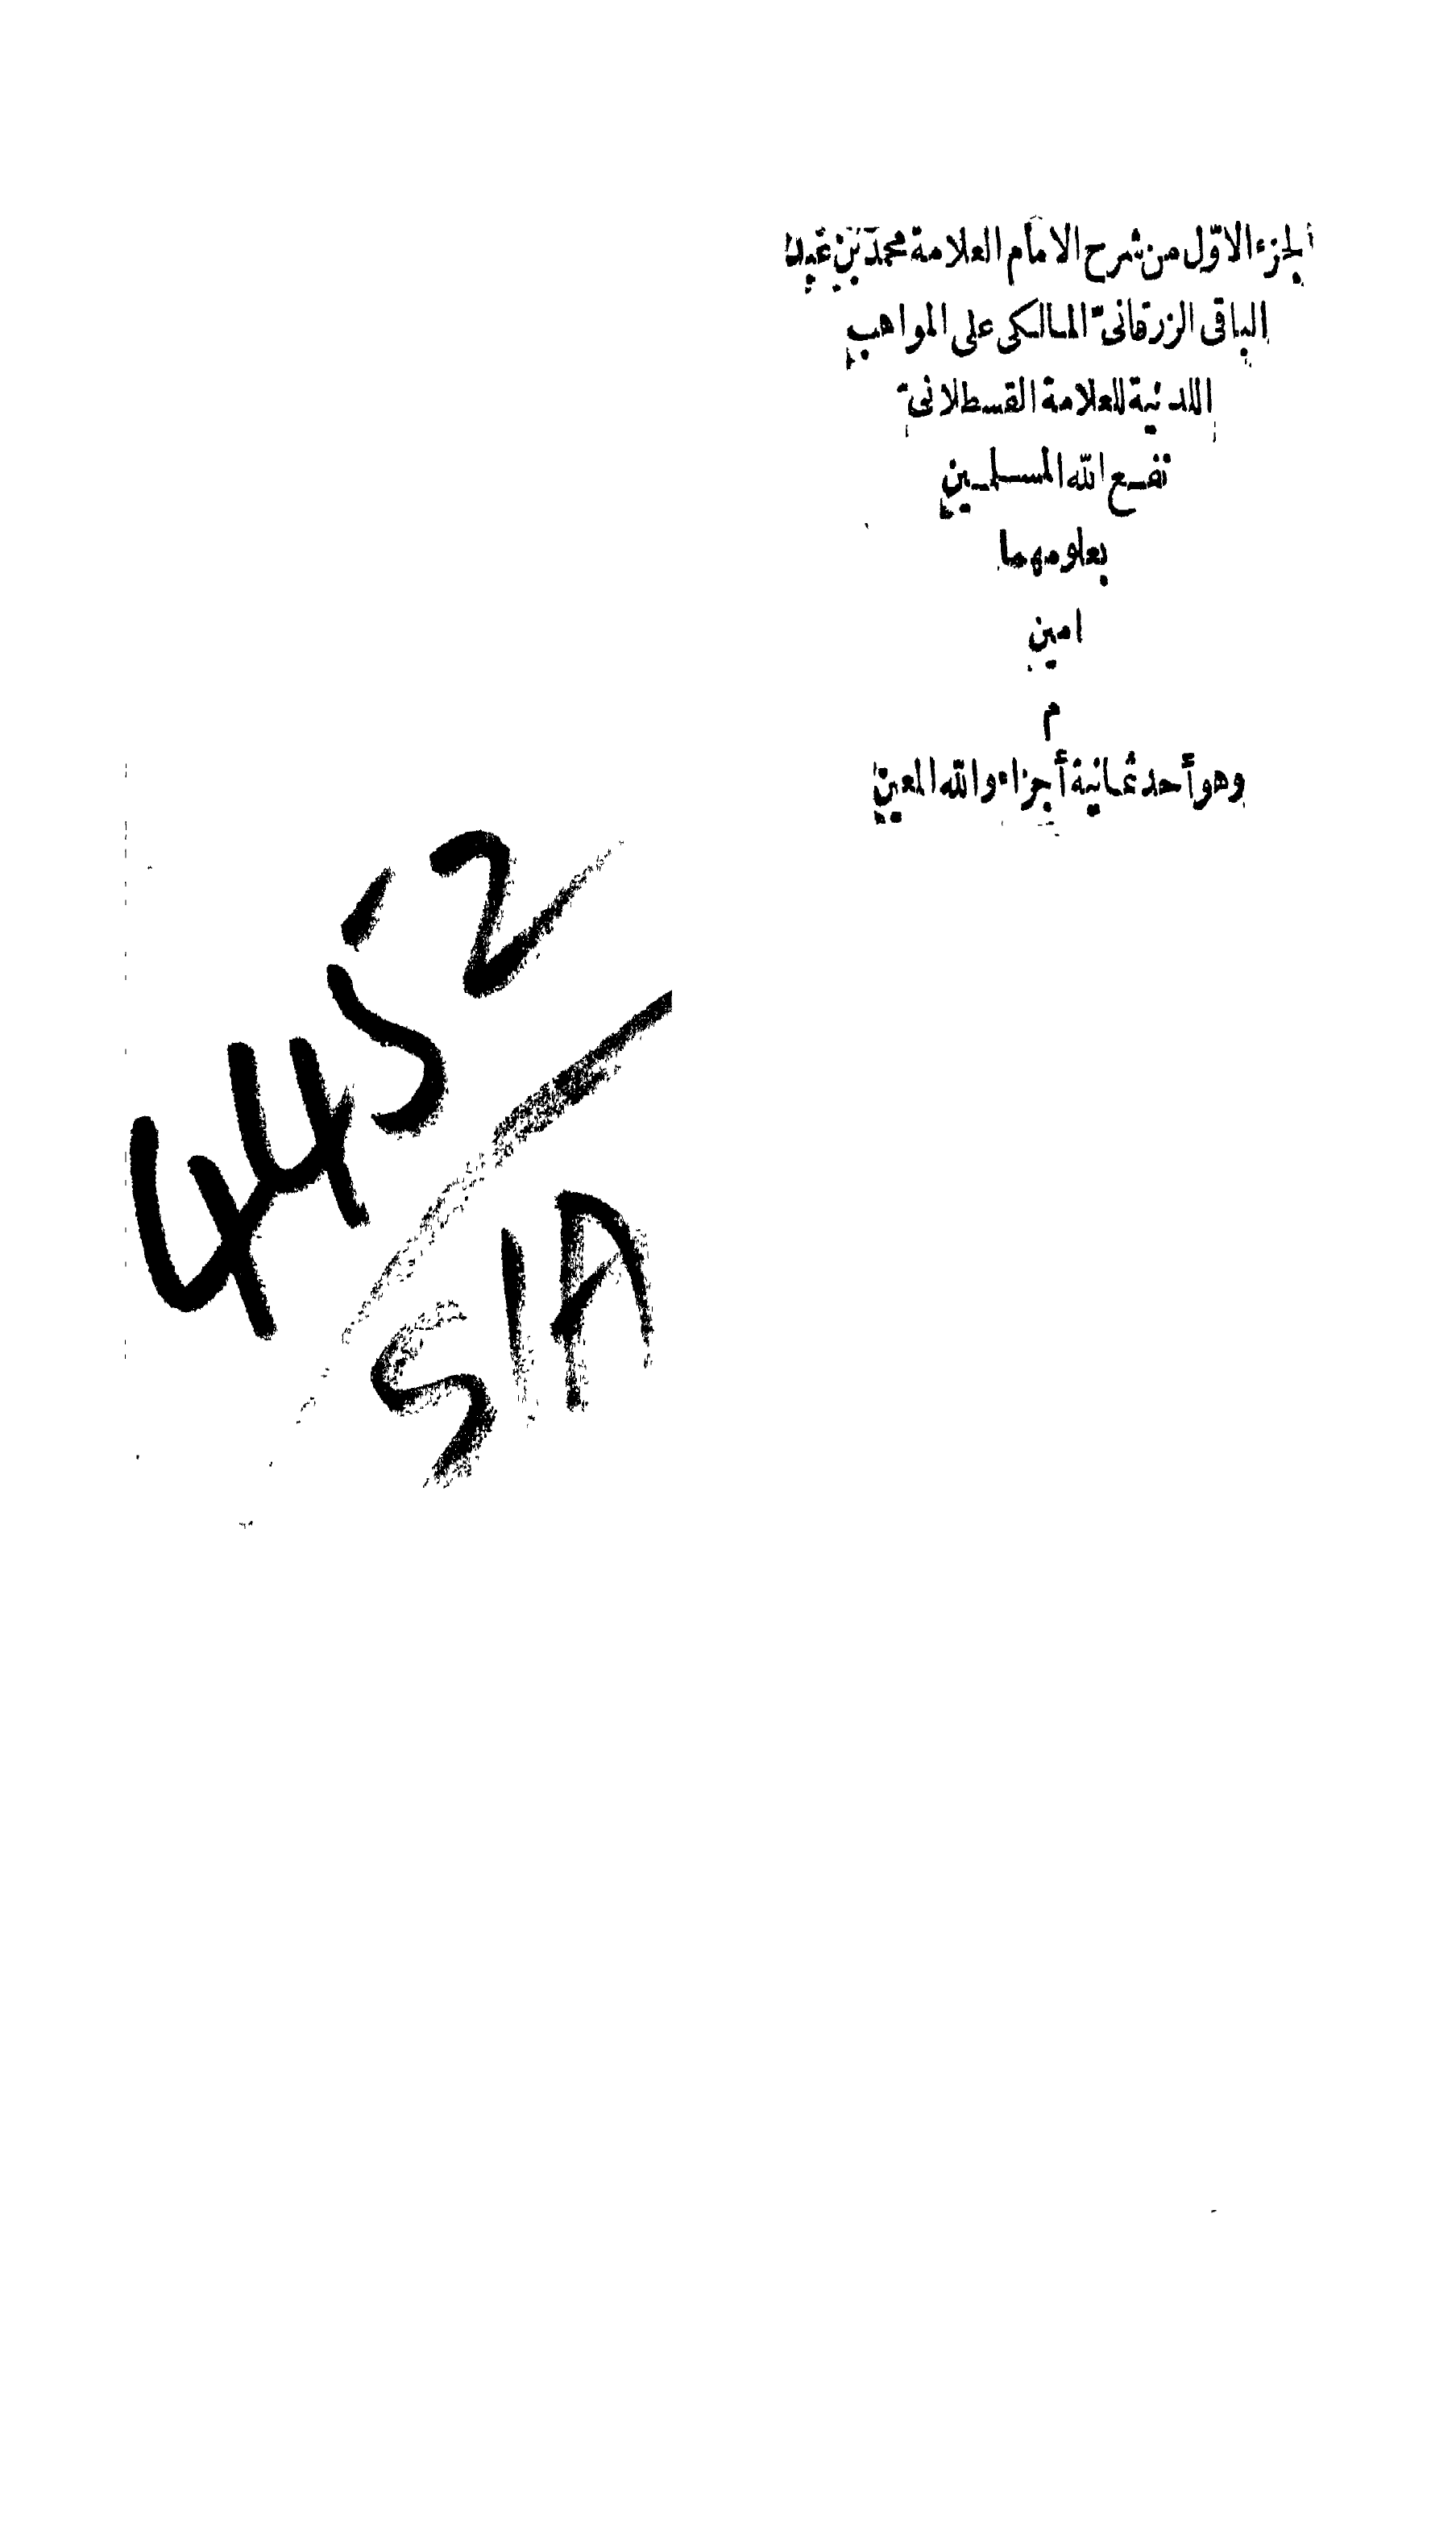 الجزء الاوّل من شرح الامام العلامة محمد بن عبد
الباقى الزرقانىّ المالكى على المواهب
اللدنية للعلامة القسطلانىّ
نفع الله المسلمين
بعلومهما
امين
م
وهو أحد ثمانية أجزاء والله المعين
445'2
SIA